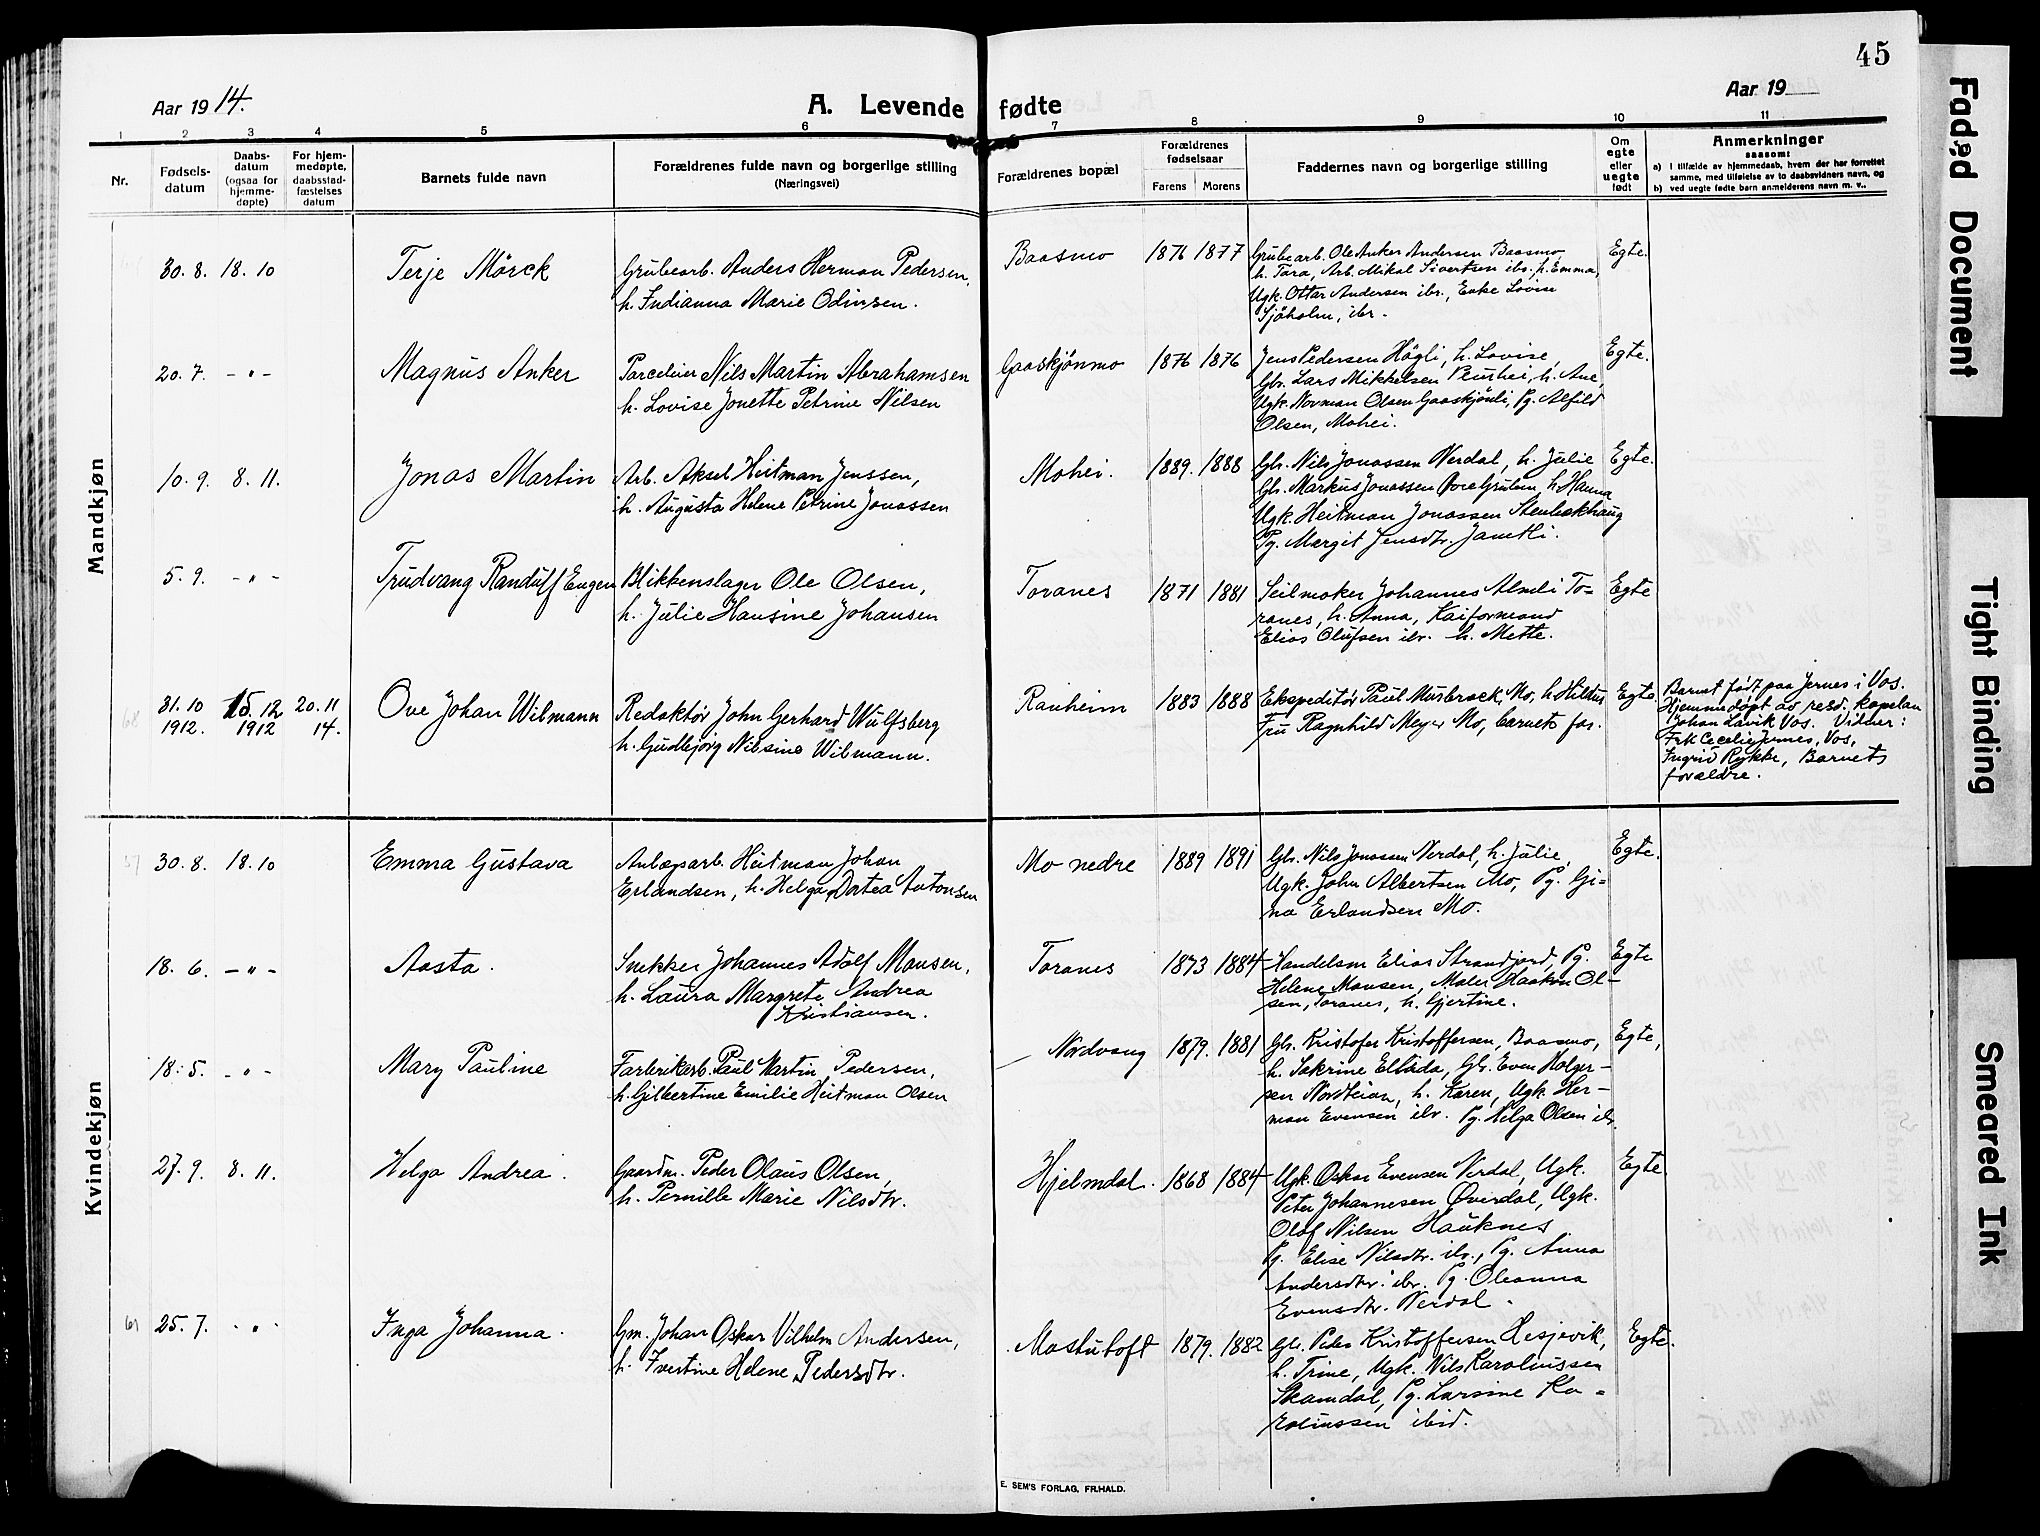 45
Aar 1914.
A. Levende fødte
Aar 19
1 2 3 4 5 6 7 8 9 10 11
Nr.
Fødsels-
datum
Daabs-
datum
(ogsaa for
hjemme-
døpte)
For hjem-
medøpte,
daabsstad-
fæstelses
datum
Barnets fulde navn
Forældrenes fulde navn og borgerlige stilling
(Næringsvei)
Forældrenes bopæl
Forældrenes
fødselsaar
Farens Morens
Faddernes navn og borgerlige stilling
Om
egte
eller
uegte
født
Anmerkninger
saasom:
a) I tilfælde av hjemmedaab, hvem der har forrettet
samme, med tilføielse av to daabsvidners navn, og
b) ved uegte fødte barn anmelderens navn m. v..
Mandkjøn
30. 8. 18. 10
Terje Mörck
Grubearb. Anders Herman Pedersen,
h. Indianna Marie Odinsen.
Baasmo
1876 1877
Grubearb. Ole Anker Andersen Baasmo
h. Tara, Arb. Mikal Sivertsen ibr. h. Emma,
Ugk. Ottar Andersen ibr., Enke Lovise
Sjöholm, ibr.
Egte.
20. 7. - " -
Magnus Anker
Parceleier Nils Martin Abrahamsen
h. Lovise Jonette Petrine Nilsen
Gaaskjønmo
1876 1876
Jens Pedersen Högli, h. Lovise,
Gbr. Lars Mikkelsen h. Ane,
Ugk. Norman Olsen Gaaskjönli, Pg. Alfild
Olsen, Mohei.
Egte.
10. 9. 8. 11.
Jonas Martin
Arb. Aksel Heitman Jenssen,
h. Augusta Helene Petrine Jonassen
Mohei.
1889. 1888
Gbr. Nils Jonassen Nerdal, h. Julie
Gbr. Markus Jonassen h. Hanna
Ugk. Heitman Jonassen Stenbekhaug
Pg. Margit Jensdtr. Jamtli.
Egte.
5. 9. - " -
Trudvang Randulf Eugen
Blikkenslager Ole Olsen,
h. Julie Hansine Johansen
Toranes
1871 1881
Seilmaker Johannes Almli To-
ranes, h. Anna, Kaiformand
Elias Olufsen ibr. h. Mette.
Egte
68
31. 10
1912.
15. 12
1912
20. 11
14.
Ove Johan Wilmann
Redaktør John Gerhard Wulfsberg
h. Gudbjörg Nilsine Wilmann.
Ranheim
1883 1888
Ekspeditör Paul Musbræk, Mo, h. Hildur
Fru Ragnhild Meyer Mo, barnets far.
Egte.
Barnet født paa Jernes i Vos.
Hjemmedøpt av resd. kapelan
Johan Lavik Vos. Vidner:
Frk Cecelie Jernes, Vos,
Ingrid Rykke, Barnets
forældre.
Kvindekjøn
57
30. 8. 18. 10
Emma Gustava
Anlægsarb. Heitman Johan
Erlandsen, h. Helga Dortea Antonsen
Mo nedre
1889 1891
Gbr. Nils Jonassen Nerdal, h. Julie,
Ugk. John Albertsen Mo, Pg. Gi-
na Erlandsen Mo.
Egte.
18. 6. - " -
Aasta.
Snekker Johannes Adolf Monsen,
h. Laura Margrete Andrea
Kristiansen.
Toranes
1873 1884
Handelsm Elias Strandjord, Pg.
Helene Monsen, Maler Haakon Ol-
sen, Toranes, h. Gjertine.
Egte
18. 5. - " -
Mary Pauline
Farberikarb. Paul Martin Pedersen,
h. Gilbertine Emilie Heitman Olsen
Nordvang
1879. 1881
Gbr. Kristofer Kristoffersen, Baasmo,
h. Sakrine Elbida, Gbr. Even Holger-
sen h. Karen, Ugk. Her-
man Evensen ibr. Pg. Helga Olsen ibr.
Egte,
27. 9. 8. 11.
Helga Andrea.
Gaardm. Peder Olaus Olsen,
h. Pernille Marie Nilsdtr.
Hjelmdal.
1868 1884
Ugk. Oskar Evensen Nerdal, Ugk.
Peter Johannesen Øverdal, Ugk.
Olaf Nilsen Hauknes
Pg. Elise Nilsdtr. ibr., Pg. Anna
Andersdtr. ibr. Pg. Oleanna
Evensdtr. Nerdal.
Egte.
61
25. 7. - " -
Inga Johanna.
Gm. Johan Oskar Vilhelm Andersen,
h. Ivertine Helene Pedersdtr.
Mostuloft
1879. 1882
Gbr. Peder Kristoffersen Hesjevik,
h. Trine, Ugk. Nils Karoliussen
Skamdal, Pg. Larsine Ka-
roliussen ibid.
Egte.
E. SEM'S FORLAG, FR.HALD.
Faded Document
Tight Binding
Smeared Ink